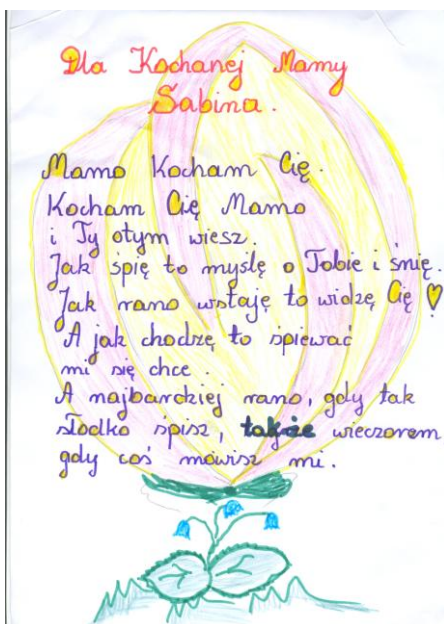 Dla Kochanej Mamy
Sabina.
Mamo Kocham Cię.
Kocham Cię Mamo
i Ty otym wiesz.
Jak śpię to myślę o Tobie i śnię.
Jak rano wstaję to widzę Cię
A jak chodzę to śpiewać
mi się chce.
A najbardziej rano, gdy tak
słodko śpisz, także wieczorem
gdy coś mówisz mi.